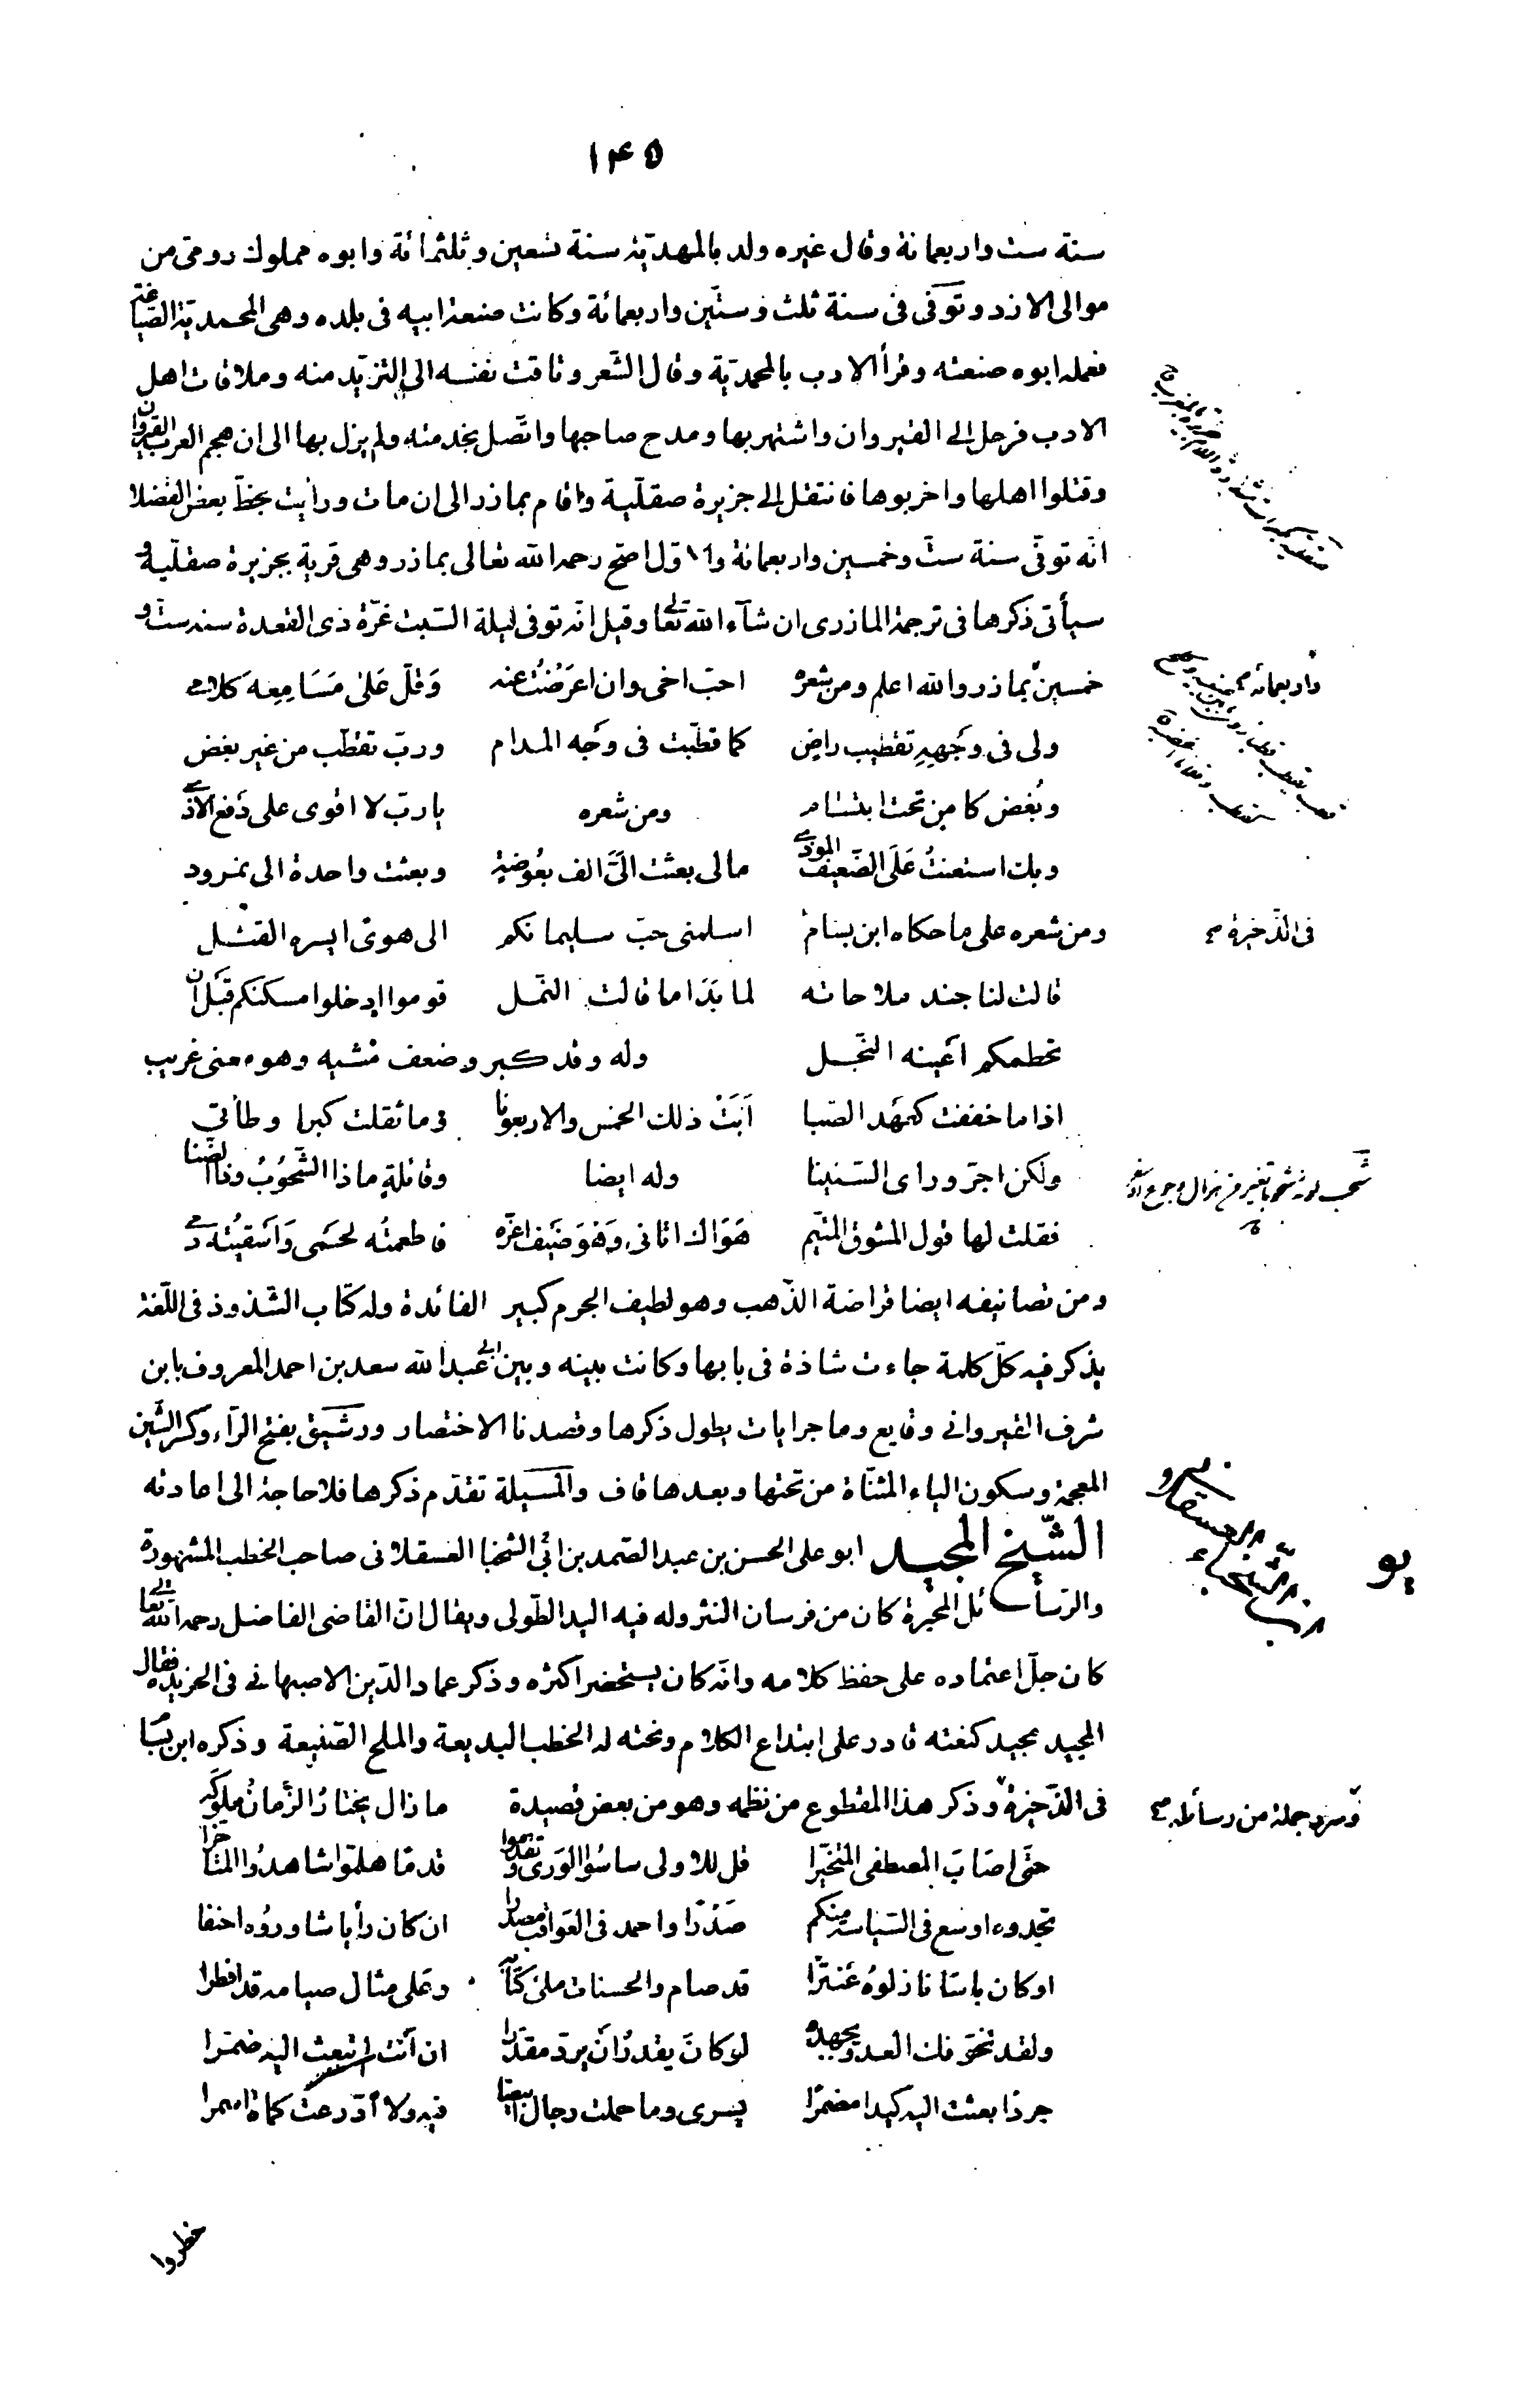 ۱۴۵
سنة ست واربعمائة وقال غيره ولد بالمهديّة سنة تسعين وثلثمائة وابوه مملوك رومى من
موالى الازد وتوفى فى سنة ثلث وستّين واربعمائة وكانت صنعة ابيه فى بلده وهى المحمديّة الصّياغة
فعلمه ابوه صنعته وقرأ الادب بالمحمديّة وقال الشّعر وتاقت نفسه الى التزيّد منه وملاقات اهل
الادب فرحل الى القيروان واشتهر بها ومدح صاحبها واتّصل بخدمته ولم يزل بها الى ان هجم العرب القيروان
وقتلوا اهلها واخربوها فانتقل الى جزيرة صقلّية واقام بمازر الى ان مات ورأيت بخطّ بعض الفضلا
انّه توفّى سنة ستّ وخمسين واربعمائة والاوّل اصح رحمه الله تعالى بمازر وهى قرية بجزيرة صقلّية و
سيأتى ذكرها فى ترجمة المازرى ان شآء الله تعالى وقيل انّه توفى ليلة السّبت غرّة ذى القعدة سنة ستّ و
خمسين بمازر والله اعلم ومن شعره احبّ اخى وان اعرضت عنه وقلّ على مسامعه كلامى
واربعمائة صح
ولى فى وجهه تقطيب راض كما قطّبت فى وجه المدام وربّ تقطّب من غير بغض
وبغض كامن تحت ابتسام ومن شعره يا ربّ لا اقوى على دفع الاذى
وبك استعنت على الضّعيف الموذى مالى بعثت الىّ الف بعوضة وبعثت واحدة الى نمرود
ومن شعره على ما حكاه ابن بسام اسلمنى حبّ سليمانكم الى هوى ايسره القتل
فى الذّخيرة صح
قالت لنا جند ملاحاته لما بدا ما قالت النّمل قوموا ادخلوا مسكنكم قبل ان
تحطمكم اعينه النّجل وله وقد كبر وضعف مشيه وهو معنى غريب
اذا ما خففت كعهد الصّبا ابت ذلك الخمس والاربعونا وما ثقلت كبرا وطأتى
ولكن اجرّ وراى السّنينا وله ايضا وقائلة ماذا الشّحوب وذا الضّنا
فقلت لها قول المشوق المتيّم هواك اتانى وهو ضيف اعزّه فاطعمته لحمى واسقيته دمى
ومن تصانيفه ايضا قراضة الذّهب وهو لطيف الجرم كبير الفائدة وله كتاب الشّذوذ فى اللّغة
يذكر فيه كلّ كلمة جاءت شاذة فى بابها وكانت بينه وبين ابى عبد الله سعد بن احمد المعروف بابن
شرف القيروانى وقايع وماجرايات يطول ذكرها وقصدنا الاختصار ورشيق بفتح الرّآء وكسر الشّين
المعجمة وسكون الياء المثنّاة من تحتها وبعدها قاف والمسيلة تقدّم ذكرها فلا حاجة الى اعادته
الشّيخ المجيد ابو على الحسن بن عبد الصّمد بن ابى الشّخبا العسقلانى صاحب الخطب المشهورة
يو
والرّسائل المحبّرة كان من فرسان النثر وله فيه اليد الطّولى ويقال انّ القاضى الفاضل رحمه الله تعالى
كان جلّ اعتماده على حفظ كلامه وانّه كان يستحضر اكثره وذكر عماد الدّين الاصبهانى فى الخريدة فقال
المجيد مجيد كنعته قادر على ابتداع الكلام ونحته له الخطب البديعة والملح الصّنيعة وذكره ابن بسّام
فى الذّخيرة وذكر هذا المقطوع من نظمه وهو من بعض قصيدة ما زال يختار الزّمان ملوكه
وسرد جملة من رسائله صح
حتّى اصاب المصطفى المتخيّرا قل للاولى ساسوا الورى وتقدّموا قدما هلمّوا شاهدوا المتاخّرا
تجدوه اوسع فى السّياسة منكم صدرا واحمد فى العواقب مصدرا ان كان رأيا شاوروه احنفا
او كان باسا نازلوه عنترا قد صام والحسنات ملئ كتابه وعلى مثال صيامه قد افطرا
ولقد تخوّفك العدو بجهده لو كان يقدر ان يردّ مقدّرا ان انت لم تبعث اليه ضمّرا
جردا بعثت اليه كيدا مضمرا يسرى وما حملت رجال ابيضا فيه ولا ادّرعت كماة اسمرا
خطروا